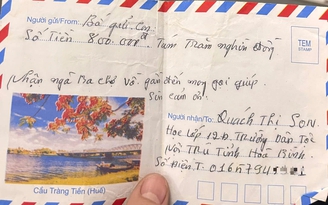 Người gửi/From: Bố gửi Con
Số Tiền 800.000đ. Tám Trăm nghìn đồng
TEM
STAMP
Nhận ngã Ba chợ vồ gần đến mong gọi giúp.
Sin cảm ơn.
Người nhận/To: Quách Thị SON.
Học Lớp 12.D. Trường Dân Tộc
Nội Trú Tỉnh Hoà Bình.
Số Điện.T. 016794
Cầu Tràng Tiền (Huế)